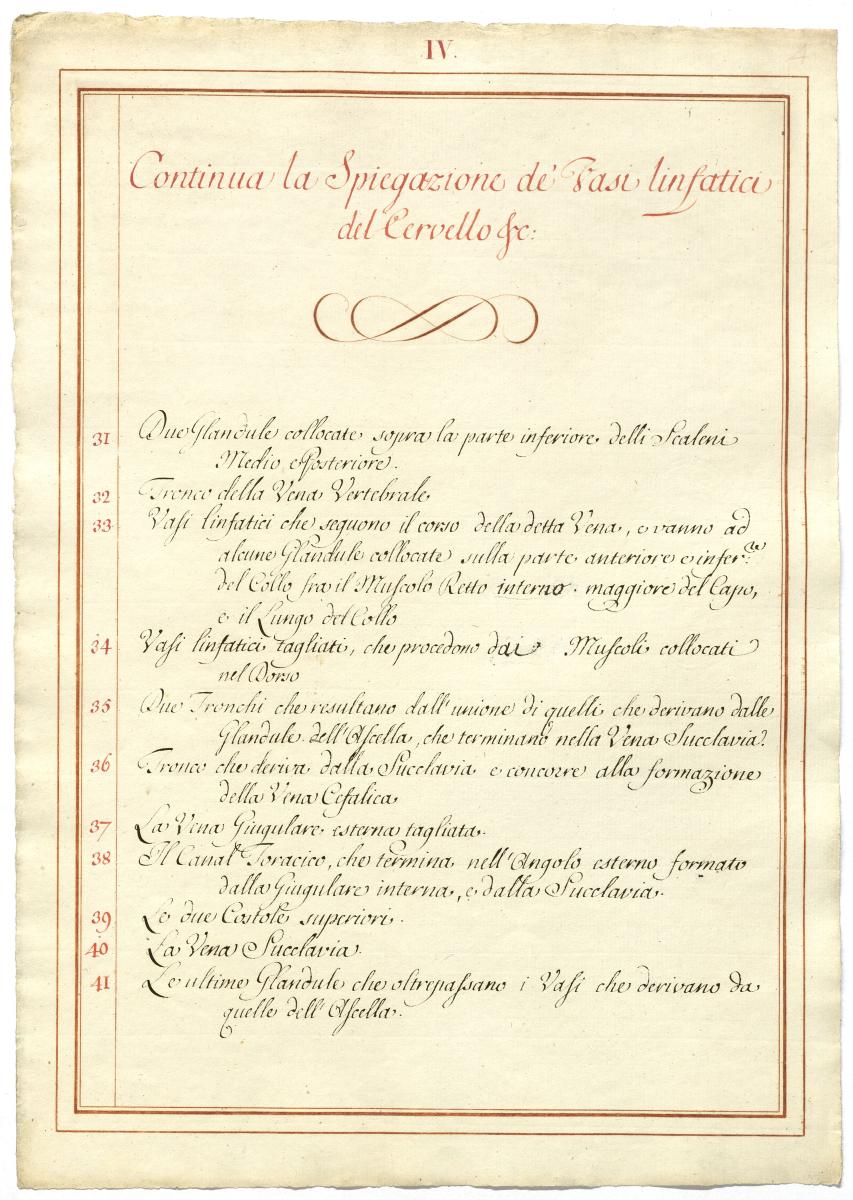 IV.
4
Continua la Spiegazione de' Vasi linfatici
del Cervello &c:
31 Due Glandule collocate sopra la parte inferiore delli Scaleni
Medio e Posteriore.
32 Tronco della Vena Vertebrale
33 Vasi linfatici che seguono il corso della detta Vena, e vanno ad
alcune Glandule collocate sulla parte anteriore e infer.re
del Collo fra il Muscolo Retto interno maggiore del Capo,
e il Lungo del Collo
34 Vasi linfatici tagliati, che procedono dai Muscoli collocati
nel Dorso
35 Due Tronchi che resultano dall'unione di quelli che derivano dalle
Glandule dell'Ascella, che terminano nella Vena Succlavia.
36 Tronco che deriva dalla Succlavia e concorre alla formazione
della Vena Cefalica
37 La Vena Giugulare esterna tagliata.
38 Il Canal Toracico, che termina nell'Angolo esterno formato
dalla Giugulare interna, e dalla Succlavia.
39 Le due Costole superiori.
40 La Vena Succlavia.
41 Le ultime Glandule che oltrepassano i Vasi che derivano da
quelle dell'Ascella.